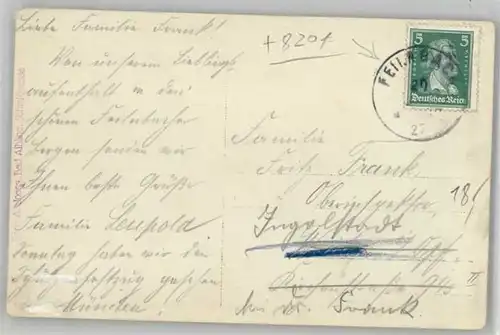 Liebe Familie Frank!
Von unserem Lieblings-
aufenthalt in den
schönen Feilnbacher
Bergen senden wir
Ihnen beste Grüße
Familie Leupold.
Sonntag haben wir den
gesehen
München
+8204
5 5
Deutsches Reich
20
27
Familie
Fritz Frank
Oberinspektor
18
Ingolstadt
II
bei Dr. Frank